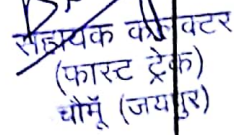 सहायक कलेक्टर
(फास्ट ट्रेक)
चौमूँ (जयपुर)